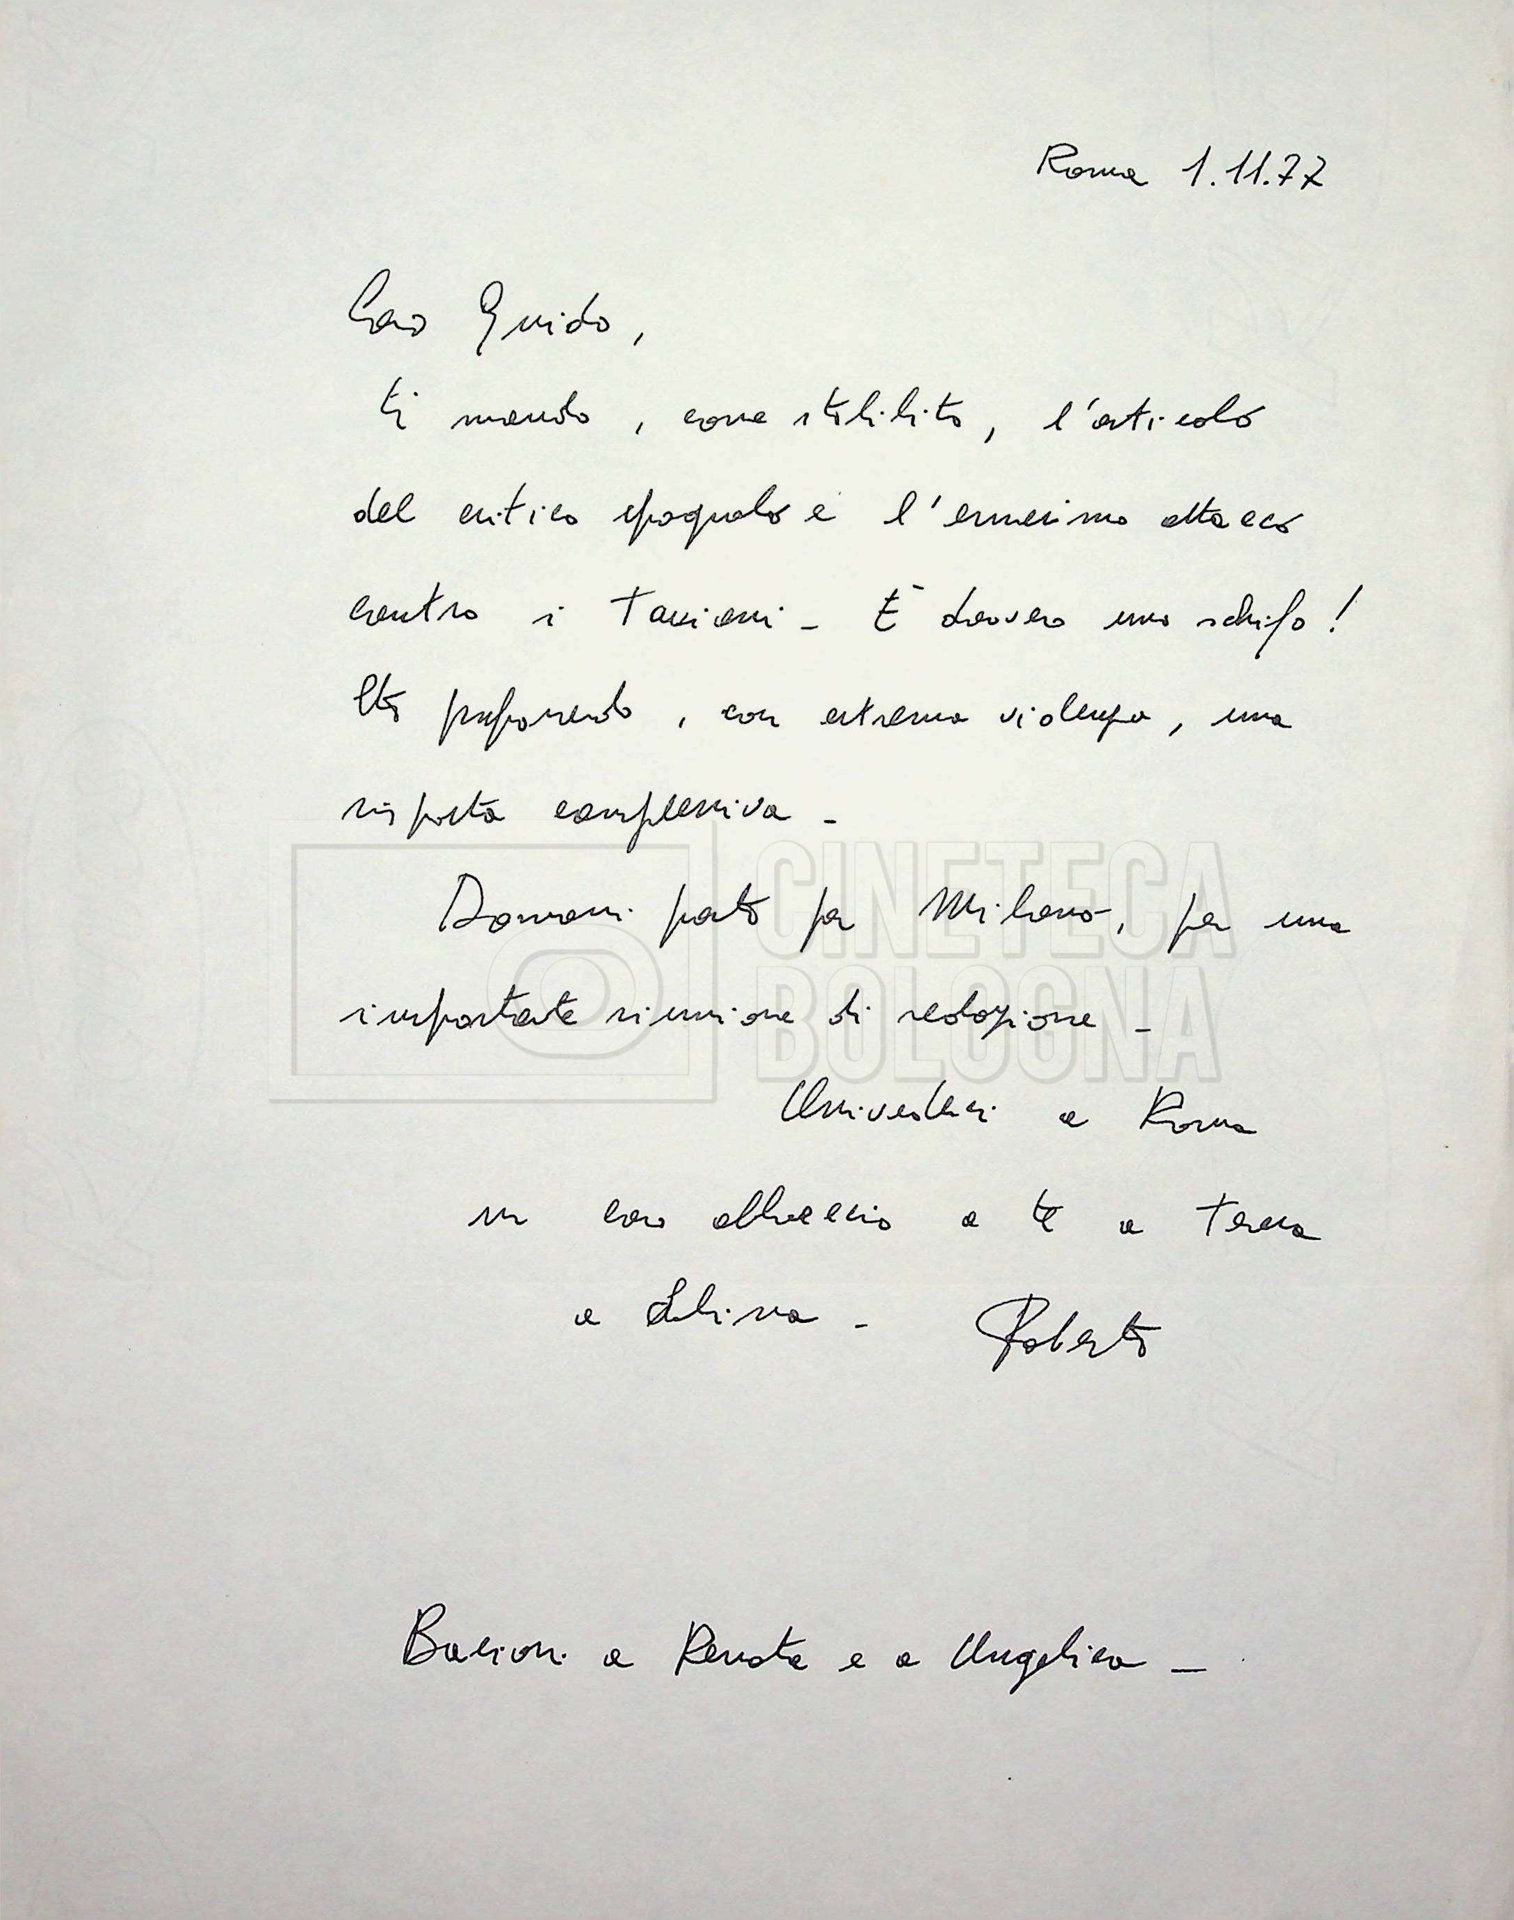 Roma 1.11.77
Caro Guido,
ti mando, come stabilito, l'articolo
del critico spagnolo e l'ennesimo attacco
contro i Taviani - È davvero uno schifo!
Sto preparando, con estrema violenza, una
risposta complessiva -
Domani parto per Milano, per una
importante riunione di redazione -
CINETECA
BOLOGNA
Arrivederci a Roma
un caro abbraccio a te a Teresa
a - Roberto
Bacioni a Renata e a Angelica -